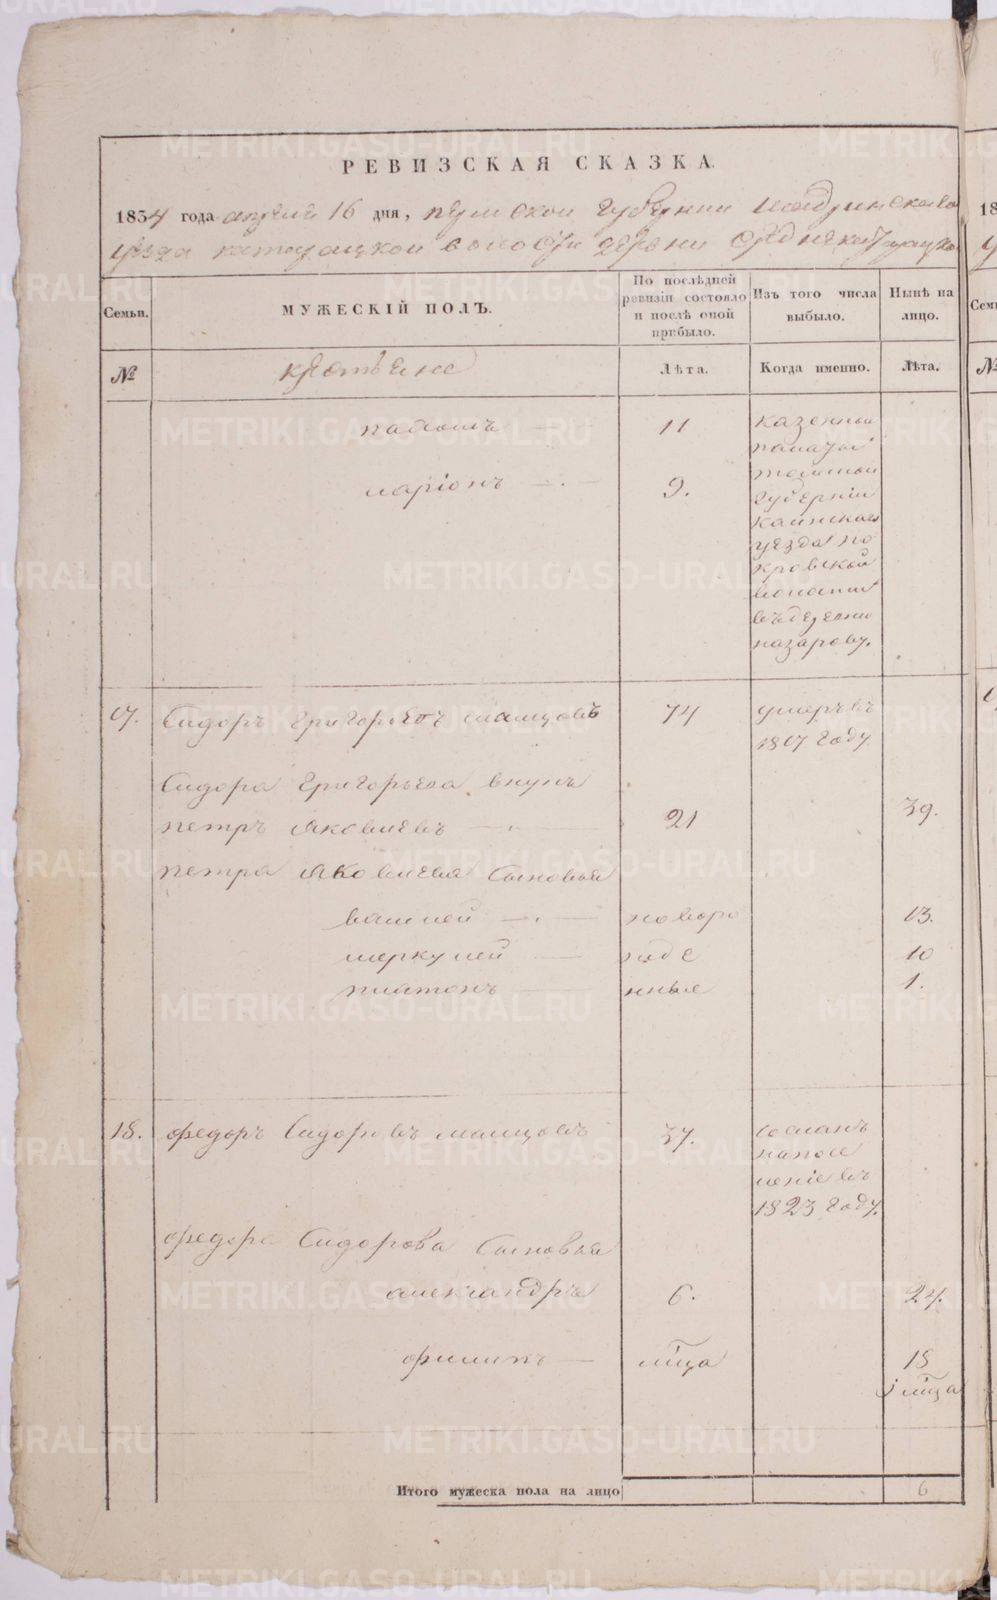 РЕВИЗСКАЯ СКАЗКА.
1834 года апреля 16 дня, пермской губернии шадринскаго
уезда волости деревни
Семьи.
МУЖЕСКІЙ ПОЛЪ.
По послѣдней ревизіи состояло и послѣ оной прибыло.
Изъ того числа выбыло.
Нынѣ на лицо.
№
крестьяне
Лѣта.
Когда именно.
Лѣта.
11
казенной
палаты
ларіонъ
9.
томской
губерніи
каинскаго
уезда по
кровской
волости
въ деревню
назарову.
17. Сидоръ Григорьевъ 74 умеръ въ
1817 году
Сидора Григорьева внукъ
петръ Яковлевъ 21 39.
петра Яковлева Сыновья
василей новоро 13.
меркулей жде 10
платонъ нные 1.
18. федоръ Сидоровъ 37. сосланъ
напосе
леніе въ
1823 году.
федора Сидорова Сыновья
александръ 6. 24.
филипъ мца 18
мца
Итого мужеска пола на лицо 6
METRIKI.GASO-URAL.RU